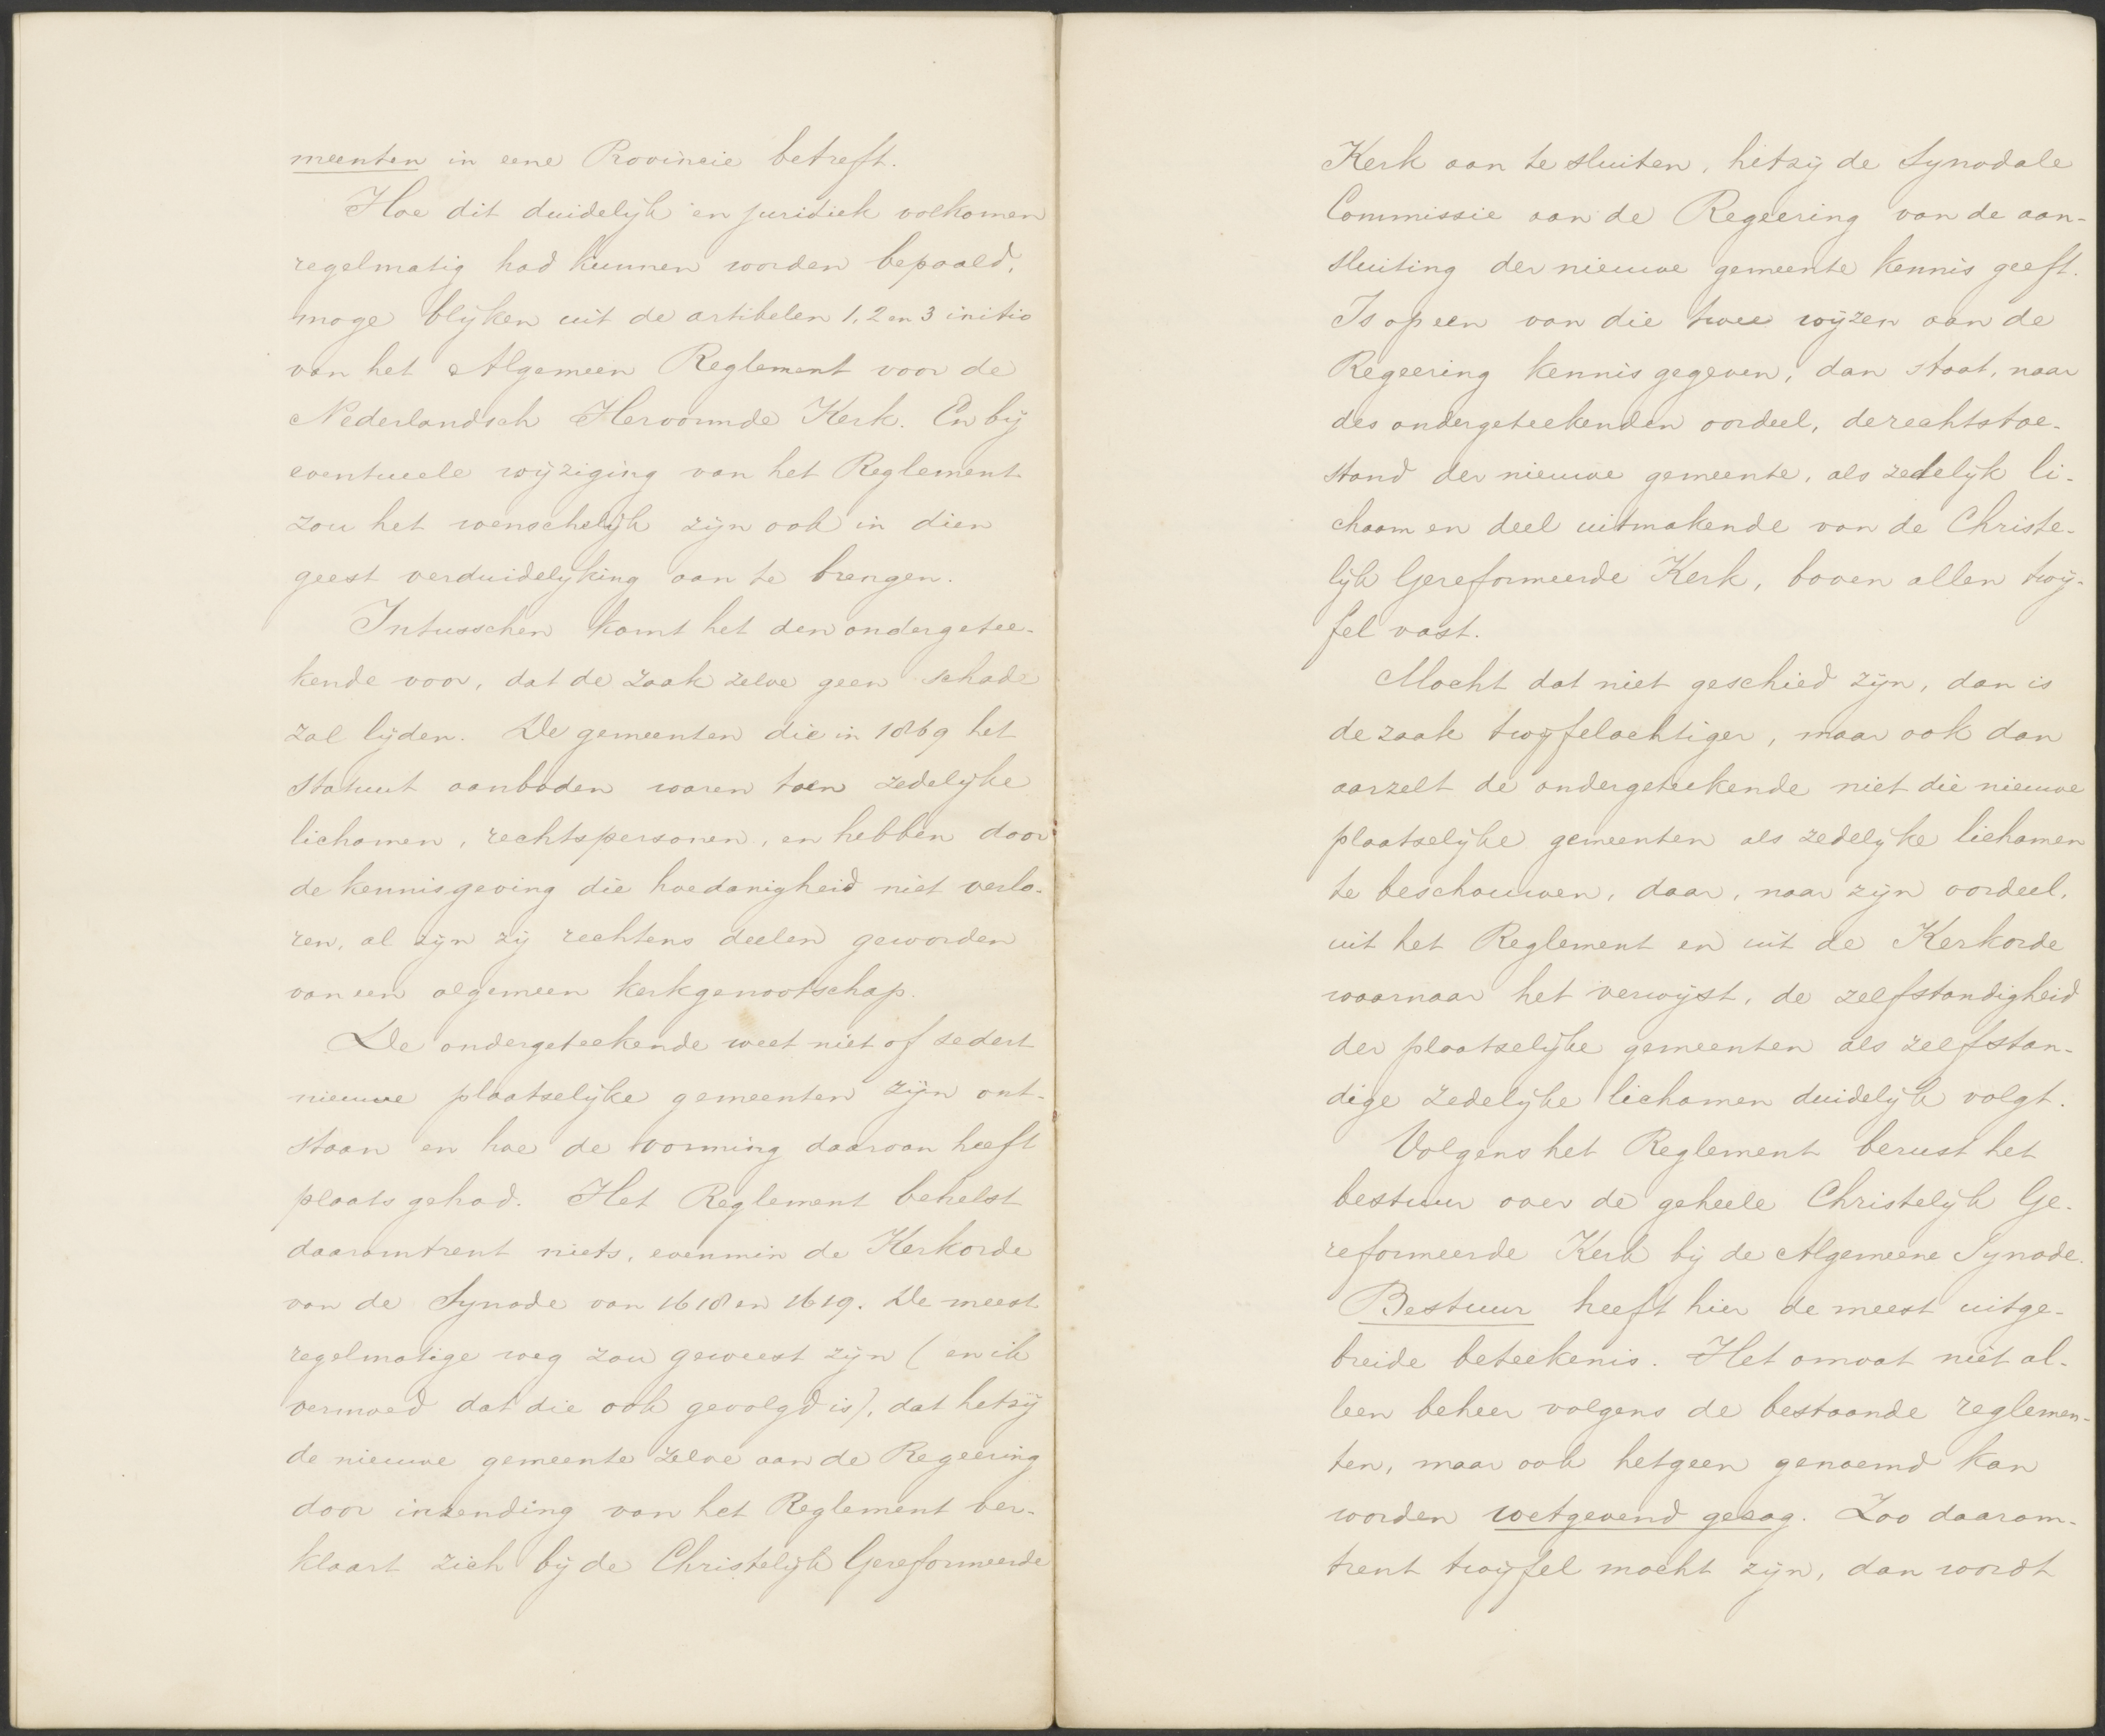 meenten in eene Provincie betreft.
Hoe dit duidelijk en juridiek volkomen
regelmatig had kunnen worden bepaald,
moge blijken uit de artikelen 1, 2 en 3 initio
van het Algemeen Reglement voor de
Nederlandsch Hervormde Kerk. En bij
eventueele wijziging van het Reglement
zou het wenschelijk zijn ook in dien
geest verduidelijking aan te brengen.
Intusschen komt het den ondergetee-
kende voor, dat de zaak zelve geen schade
zal lijden. De gemeenten die in 1869 het
Statuut aanboden waren toen zedelijke
lichamen, rechtspersonen, en hebben door
de kennisgeving die hoedanigheid niet verlo-
ren, al zijn zij rechtens deelen geworden
van een algemeen kerkgenootschap.
De ondergeteekende weet niet of sedert
nieuwe plaatselijke gemeenten zijn ont-
staan en hoe de vorming daarvan heeft
plaats gehad. Het Reglement behelst
daaromtrent niets, evenmin de Kerkorde
van de Synode van 1618 en 1619. De meest
regelmatige weg zou geweest zijn (en ik
vermoed dat die ook gevolgd is), dat hetzij
de nieuwe gemeente zelve aan de Regeering
door inzending van het Reglement ver-
klaart zich bij de Christelijk Gereformeerde
Kerk aan te sluiten, hetzij de Synodale
Commissie aan de Regeering van de aan-
sluiting der nieuwe gemeente kennis geeft.
Is op een van die twee wijzen aan de
Regeering kennis gegeven, dan staat, naar
des ondergeteekenden oordeel, de rechtstoe-
stand der nieuwe gemeente, als zedelijk li-
chaam en deel uitmakende van de Christe-
lijk Gereformeerde Kerk, boven allen twij-
fel vast.
Mocht dat niet geschied zijn, dan is
de zaak twijfelachtiger, maar ook dan
aarzelt de ondergeteekende niet die nieuwe
plaatselijke gemeenten als zedelijke lichamen
te beschouwen, daar, naar zijn oordeel,
uit het Reglement en uit de Kerkorde
waarnaar het verwijst, de zelfstandigheid
der plaatselijke gemeenten als zelfstan-
dige zedelijke lichamen duidelijk volgt.
Volgens het Reglement berust het
bestuur over de geheele Christelijk Ge-
reformeerde Kerk bij de Algemeene Synode.
Bestuur heeft hier de meest uitge-
breide beteekenis. Het omvat niet al-
leen beheer volgens de bestaande reglemen-
ten, maar ook hetgeen genoemd kan
worden wetgevend gezag. Zoo daarom-
trent twijfel mocht zijn, dan wordt